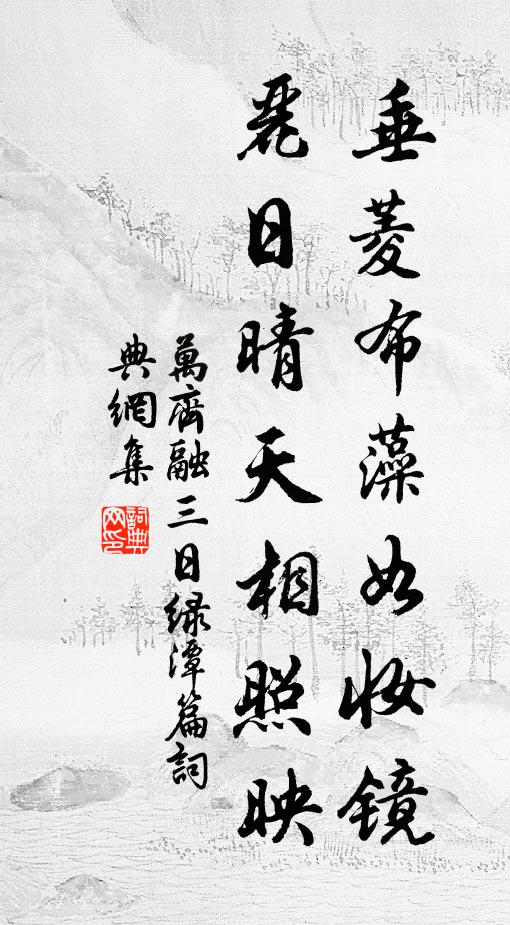 垂菱布藻如妆镜
麗日晴天相照映
萬齊融三日緑潭篇詞
典網集
詞典网印